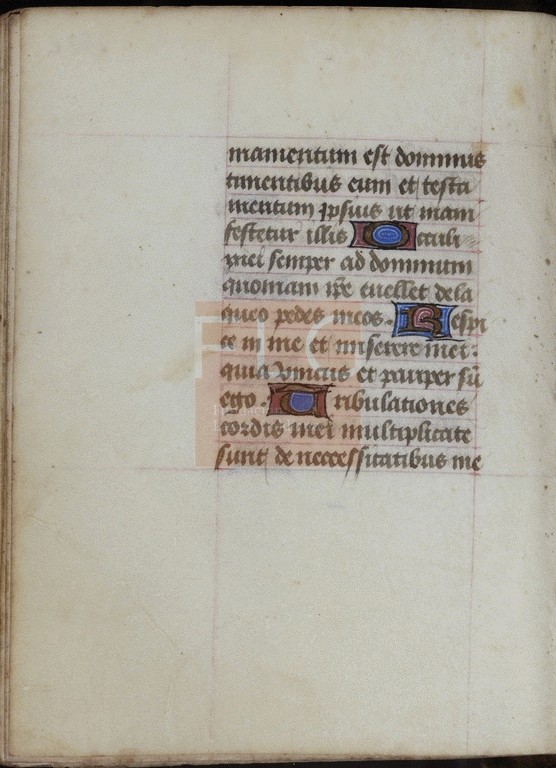 mamentum est dominus
timentibus eum et testa
mentum ipsius ut mani
festetur illis Oculi
mei semper ad dominum
quoniam ipe euellet dela
queo pedes meos. Respi
ce in me et miserere mei:
quia vnicus et pauper sū
ego. Tribulationes
cordis mei multiplicate
sunt de neccessitatibus me
FLG